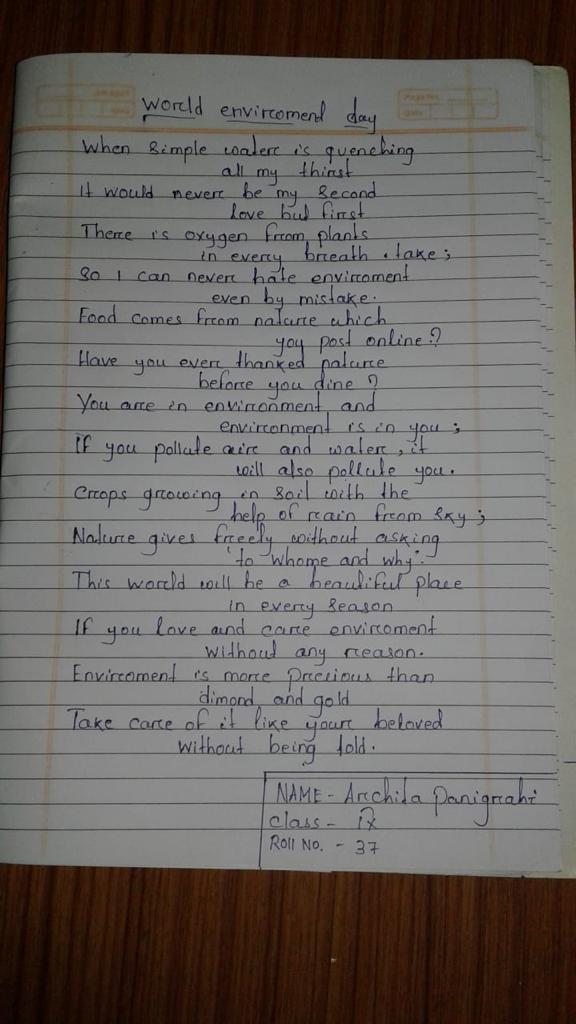 World enviroment day
When simple water is quenching
all my thirst
It would never be my second
love but first
There is oxygen from plants
in every breath . take ;
So I can never hate enviroment
even by mistake.
Food comes from nature which
you post online ?
Have you ever thanked nature
before you dine ?
You are in environment and
environment is in you ;
If you pollute air and water, it
will also pollute you.
Crops growing in soil with the
help of rain from sky ;
Nature gives freely without asking
'to whome and why'.
This world will be a beautiful place
in every season
If you love and care enviroment
without any reason.
Enviroment is more precious than
dimond and gold
Take care of it like your beloved
without being told.
NAME - Archita Panigrahi
Class - IX
Roll No. - 37